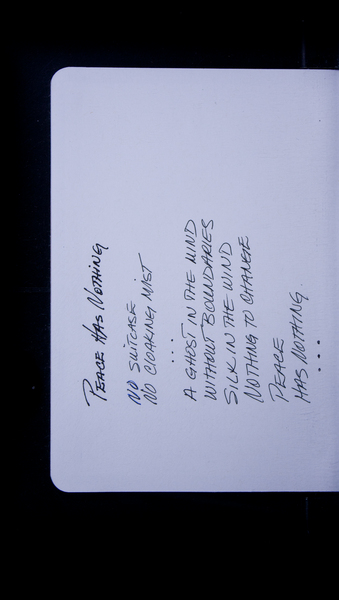 PEACE HAS NOTHING
NO SUITCASE
NO CLOAKING MIST
....
A GHOST IN THE MIND
WITHOUT BOUNDARIES
SILK IN THE WIND
NOTHING TO CHANGE
PEACE
HAS NOTHING.
...